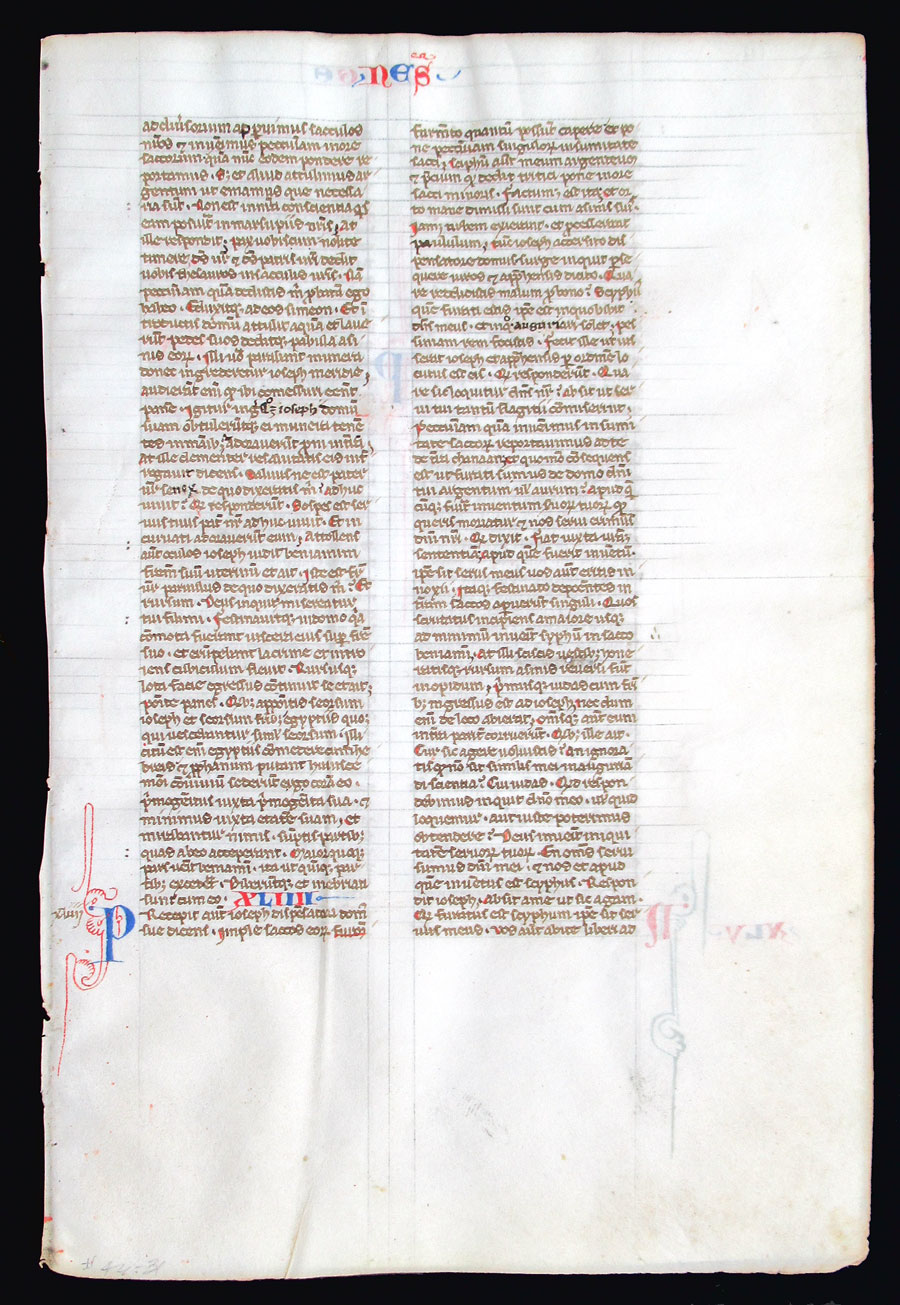 NES
ad diuersorium aperuimus sacculos
nr̄os & inuenimus pecuniam in ore
saccorum quā nunc eodem pondere re
portamus · s; et aliud attulimus ar
gentum ut emamus que necessa
ria sūt · Non est in nr̄a conscientia q̄s
eam posuit in marsupiis nr̄is, At
ille respondit; pax uobiscum nolite
timere, ds̄ ur̄ & ds̄ patris ur̄i dedit
uobis thesauros in sacculis ur̄is · Nā
pecuniam quā dedistis m̄ probatā ego
habeo · Eduxitq; ad eos simeon · Et ī
troductis domū attulit aquā et laue
rūt pedes suos deditq; pabula asi
nis eorꝝ · Illi u̕o parabant munera
donec ingrederetur ioseph meridie,
audierāt enī q̄ ibi comessuri eēnt
panē · Igitur ingressꝰ ē ioseph domū
suam obtulerūtq; ei munera tenē
tes in manib; & adorauerūt pni in t̄rā,
At ille clementer resalutatis eis int̄
rogauit dicens · Saluus ne est pater
ur̄ senex de quo dixeratis m̄ · adhuc
uiuit · Qi responderūt · Sospes est ser
uus tuus pat̄ nr̄ adhuc uiuit · Et in
curuati adorauerūt eum, Attollens
aūt oculos ioseph uidit beniamin
fratrem suū uterinū et ait · Iste est frat̄
ur̄ paruulus de quo dixeratis m̄ · Et
rursum · Deus inquit misereatur
tui fili mi · Festinauitq; in domo q̄a
cōmota fuerant uiscera eius sup̄ frē
suo · et erūpebant lacrime et intro
iens cubiculum fleuit · Rursusq;
lota facie egressus cōtinuit se et ait;
ponite panes · Qib; appositis seorsum
ioseph et seorsum frīb; egyptiis quoq;
qui uescebantur simul seorsum · Illi
citū est enī egyptiis cōmedere cum he
breis & pphanum putant huiusce
modi cōuiuiū sederūt ergo corā eo ·
p̄mogenitus iuxta p̄mogenita sua · &
minimus iuxta etatē suam, et
mirabantur nimis · sūptis partib;
quas ab eo acceperant · Maiorq; pars
uenit beniamin · ita ut quinq; par
tib; excederet · Biberūtq; et inebriati
sunt cum eo · XLIIII
Precepit aūt ioseph dispensatori dom̄
sue dicens · Imple saccos eorꝝ
frum̄to quantū possunt capere et po
ne pecuniam singulorꝝ in sumitate
sacci, sciphū aūt meum argenteum
& preciū q̄ dedit tritici pone in ore
sacci minoris · Factum; est ita · et or
to mane dimissi sunt cum asinis suis ·
Iamq; urbem exierant · et pcesserant
paululum, tūc ioseph accersito dis
pensatore domus surge inquit p̄se
quere uiros & appħensis dicito · Qua
re reddidistis malum p̄ bono · Scyphū
quē furati estis ip̄e est in quo bibit
dn̄s meus · et in quo augurari solet, pes
simam rem fecistis · Fecit ille ut ius
serat ioseph et appħensis per ordinē lo
cutus est eis · Qi responderūt · Qua
re sic loquitur dn̄s nr̄ · absit ut ser
ui tui tantū flagitii cōmiserint ·
Pecuniam quā inuenimus in sumi
tate saccorꝝ reportauimus ad te
de t̄ra chanaan et quomō cōsequens
est ut furati simus de domo dn̄i
tui argentum ul̄ aurum · apud q̄
cūq; fuerit inuentum seruorꝝ tuorꝝ q̄
queris moriatur & nos serui erimus
dn̄i nr̄i · Qi dixit · Fiat iuxta ur̄am
sententiā apud quē fuerit inuentū ·
ip̄e sit seruus meus uos aūt eritis in
noxii · Itaq; festinato deponentes in
t̄ram saccos aperuerūt singuli · Quos
scrutatus incipiens a maiore usq;
ad minimū inuenit scyphū in sacco
beniamī · At illi scissis uestib; hone
ratisq; rursum asinis reuersi sunt
in opidum, p̄musq; iudas cum frī
b; ingressus est ad ioseph, nec dum
enī de loco abierat, omēsq; ante eum
in t̄ra parit̄ corruerūt · Qib; ille ait ·
Cur sic agere uoluistis · An ignora
tis q̄ non sit similis mei in auguran
di scientia · Cui iudas · Qid respon
debimus inquit dn̄o meo · uel quid
loquemur · aut iuste poterimus
obtendere · Deus inuenit iniqui
tatē seruorꝝ tuorꝝ · En omēs serui
sumus dn̄i mei · & nos et apud
quē inuentus est scyphus · Respon
dit ioseph · Absit a me ut sic agam ·
Qi furatus est scyphum ip̄e sit ser
uus meus · uos aūt abite liberi ad